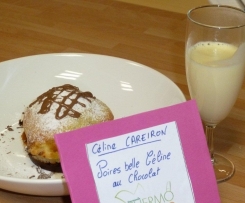 Céline CAREIRON
Poires belle Céline
au Chocolat